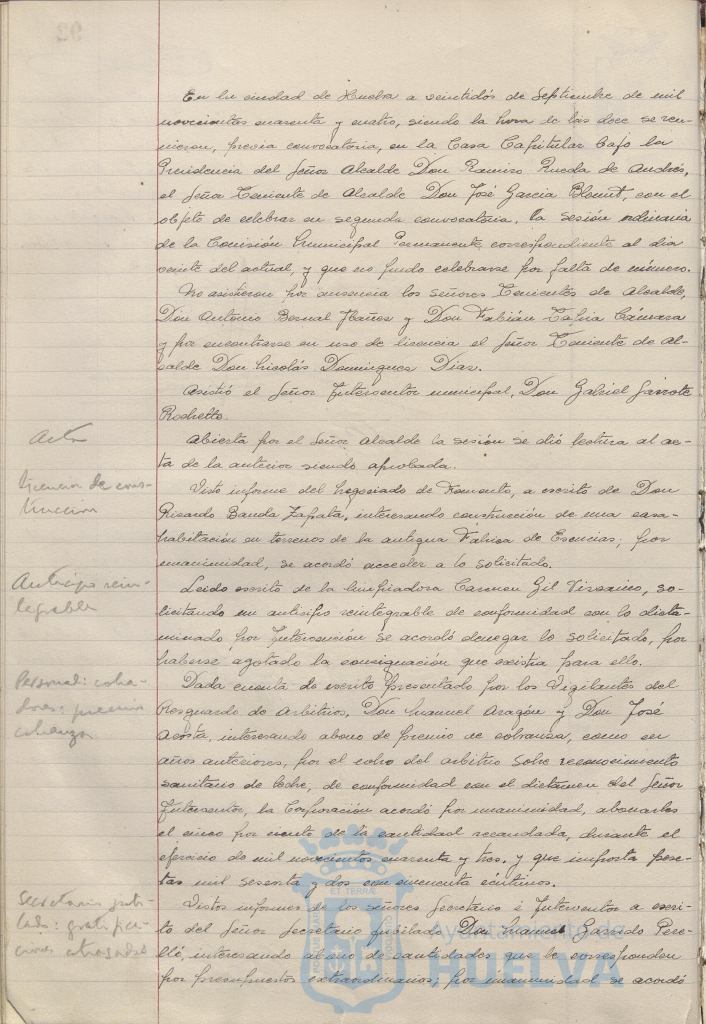 En la ciudad de Huelva a veintidós de Septiembre de mil
novecientos cuarenta y cuatro, siendo la hora de las doce se reu-
nieron, previa convocatoria, en la Casa Capitular bajo la
Presidencia del Señor Alcalde Don Ramiro Rueda de Andrés,
el Señor Teniente de Alcalde Don José Garcia Blount, con el
objeto de celebrar en segunda convocatoria, la sesión ordinaria
de la Comisión Municipal Permanente correspondiente al dia
veinte del actual, y que no pudo celebrarse por falta de número.
No asistieron por ausencia los señores Tenientes de Alcalde,
Don Antonio Bernal Ibañez y Don Fabián Tapia Cámara
y por encontrarse en uso de licencia el Señor Teniente de Al-
calde Don Nicolás Dominguez Diaz.
Asistió el Señor Interventor municipal, Don Gabriel Garrote
Rochetto.
Acta
Abierta por el Señor Alcalde la sesión se dió lectura al ac-
ta de la anterior siendo aprobada.
licencia de cons-
trucción
Visto informe del Negociado de Fomento, a escrito de Don
Ricardo Banda Zapata, interesando construcción de una casa-
habitación en terrenos de la antigua Fabrica de Esencias; por
unanimidad, se acordó acceder a lo solicitado.
Anticipo rein-
tegrable
Leido escrito de la limpiadora Carmen Gil, so-
licitando un anticipo reintegrable de conformidad con lo dicta-
minado por Intervención se acordó denegar lo solicitado, por
haberse agotado la consignación que existia para ello.
Personal: cobra-
dores: premio
cobranza
Dada cuenta de escrito presentado por los Vigilantes del
Resguardo de Arbitrios, Don Manuel Aragón y Don José
Acosta, interesando abono de premio de cobranza, como en
años anteriores, por el cobro del arbitrio sobre reconocimiento
sanitario de leche, de conformidad con el dictamen del Señor
Interventor, la Corporación acordó por unanimidad, abonarles
el cinco por ciento de la cantidad recaudada, durante el
ejercicio de mil novecientos cuarenta y tres, y que importa pese-
tas mil sesenta y dos con cincuenta céntimos.
Secretario jubi-
lado: gratifica-
ciones atrasadas
Vistos informes de los señores Secretario é Interventor a escri-
to del Señor Secretario jubilado Don Manuel Garrido Pere-
lló, interesando abono de cantidades que le corresponden
por presupuestos extraordinarios; por unanimidad se acordó
Ayuntamiento
HUELVA